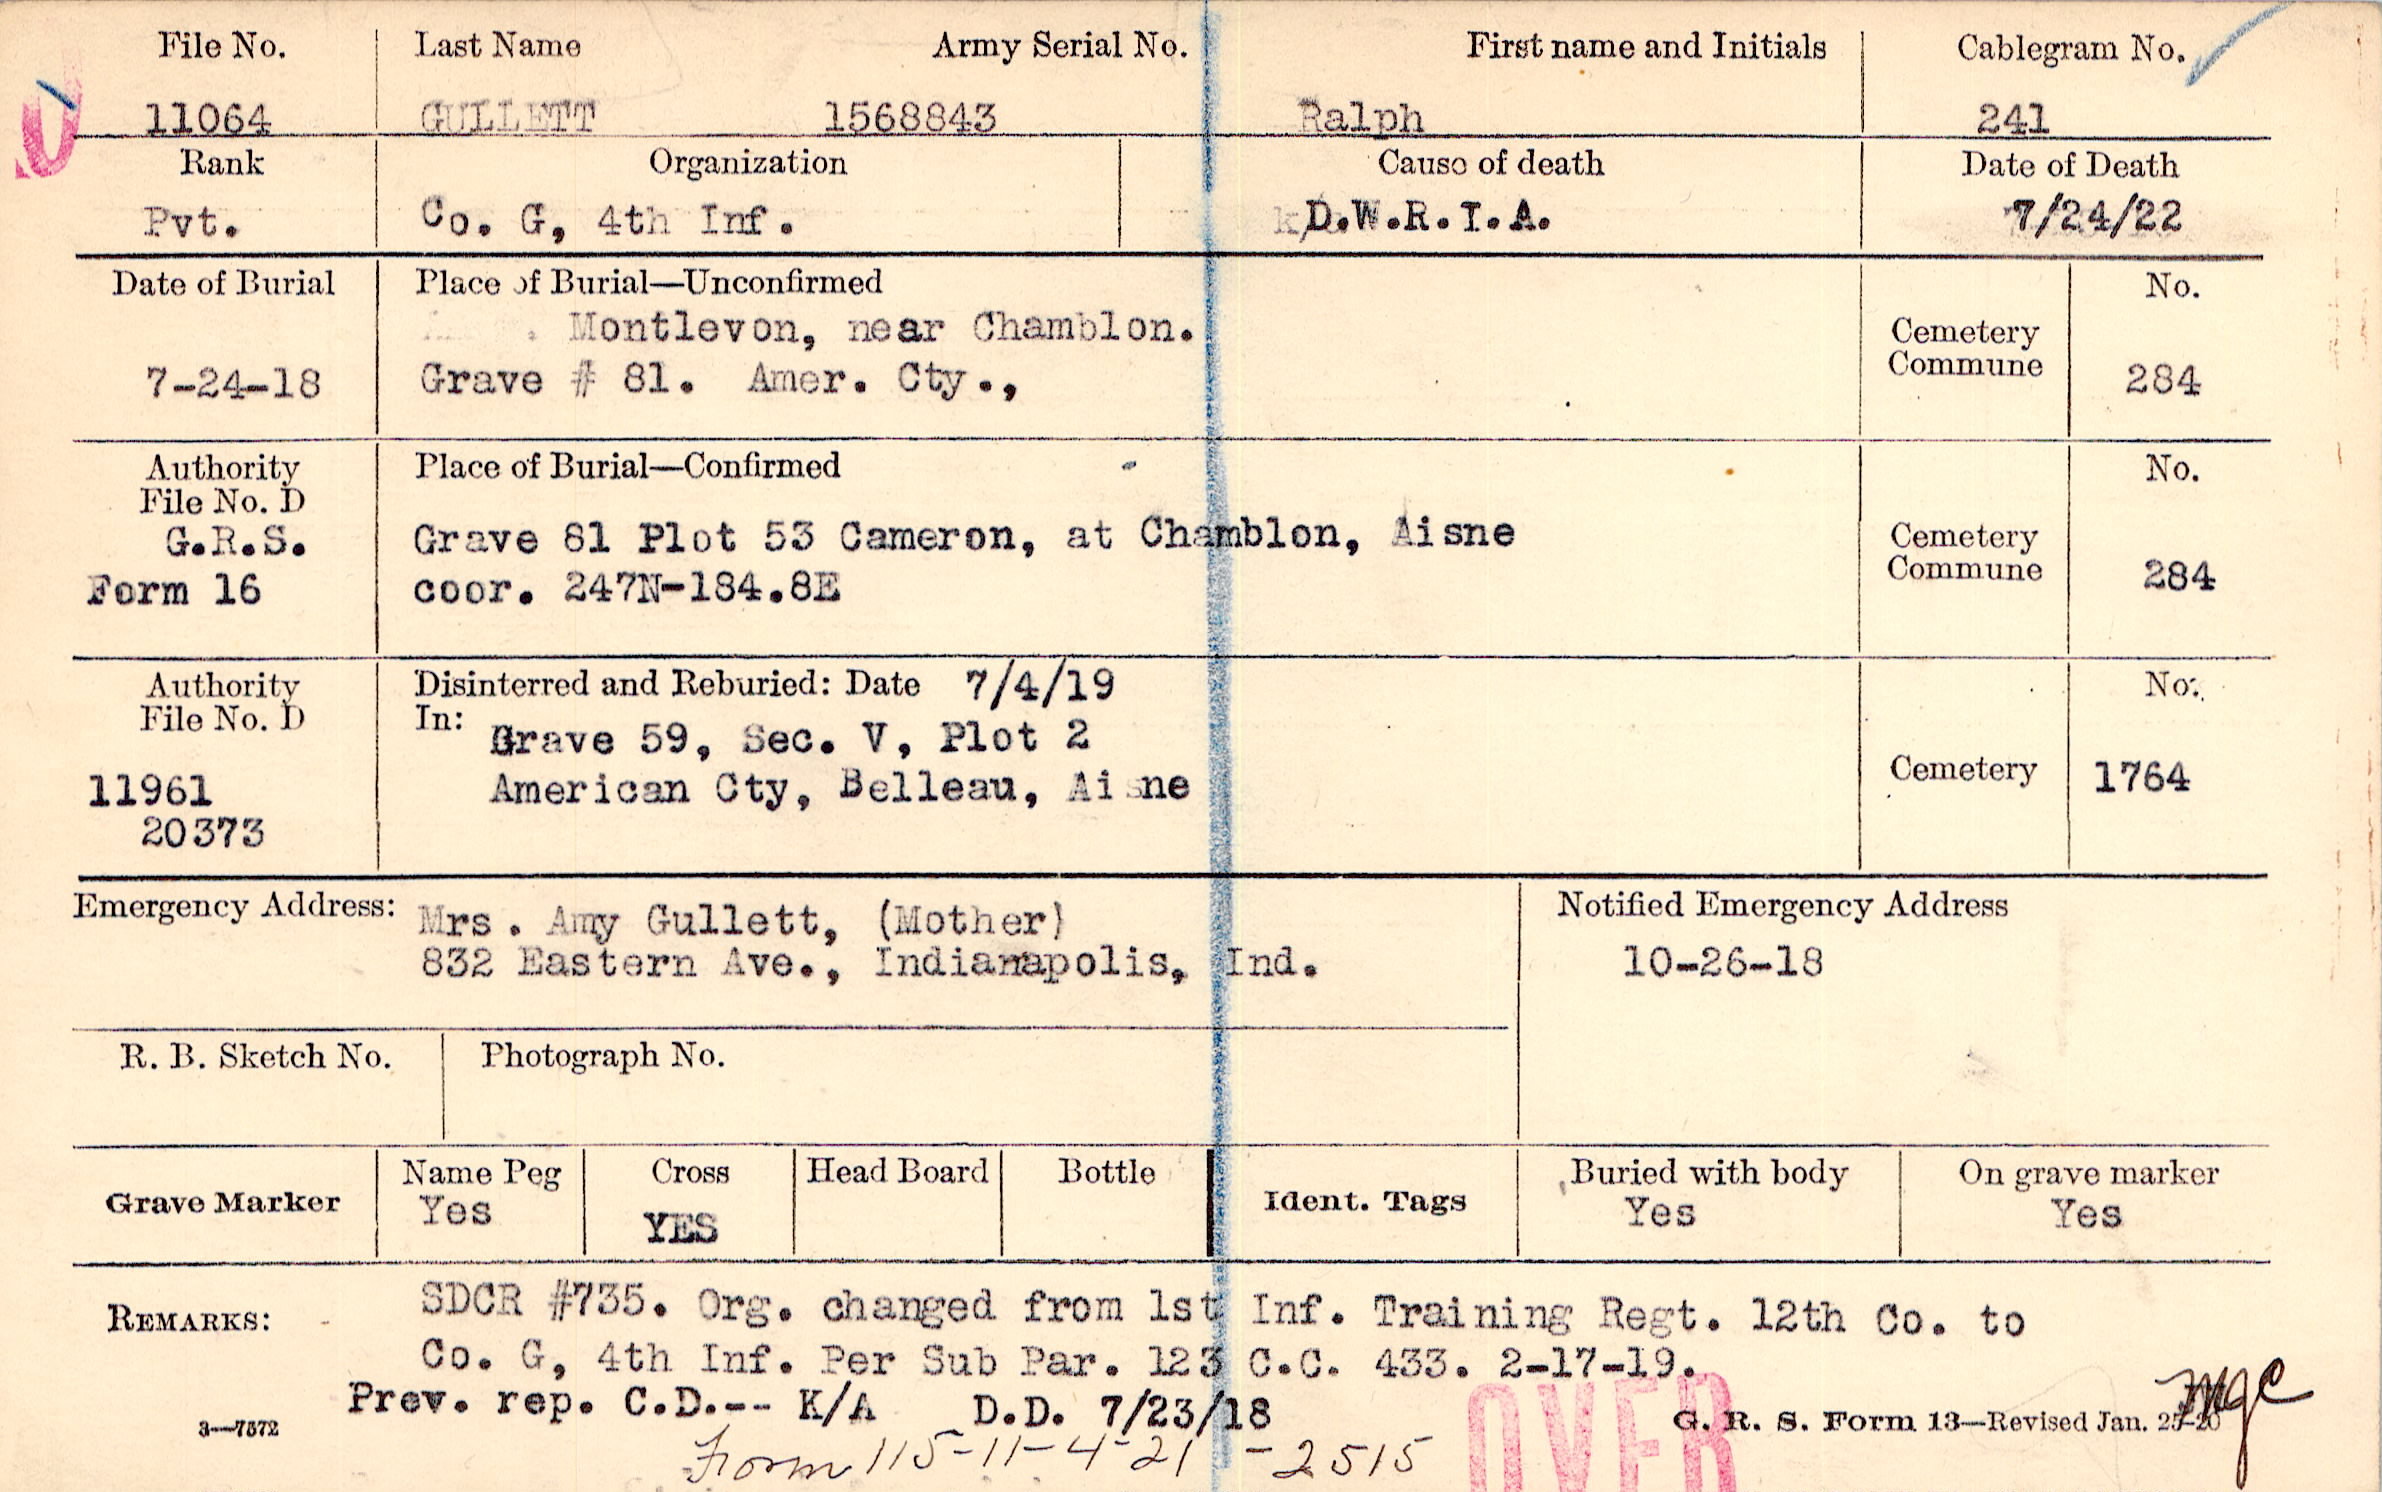 File No. Last Name Army Serial No. First name and Initials Cablegram No.
11064 GULLETT 1568843 Ralph 241
Rank Organization Cause of death Date of Death
Pvt. Co. G, 4th Inf. D.W.R.I.A. 7/24/22
Date of Burial Place of Burial—Unconfirmed No.
Montlevon, near Chamblon. Cemetery
Commune
7-24-18 Grave # 81. Amer. Cty., 284
Authority Place of Burial—Confirmed No.
File No. D
G.R.S. Grave 81 Plot 53 Cameron, at Chamblon, Aisne Cemetery
Commune
Form 16 coor. 247N-184.8E 284
Authority Disinterred and Reburied: Date 7/4/19 No.
File No. D In:
Grave 59, Sec. V, Plot 2
11961 American Cty, Belleau, Aisne Cemetery 1764
20373
Emergency Address: Mrs. Amy Gullett, (Mother) Notified Emergency Address
832 Eastern Ave., Indianapolis, Ind. 10-26-18
R. B. Sketch No. Photograph No.
Grave Marker Name Peg Cross Head Board Bottle Ident. Tags Buried with body On grave marker
Yes YES Yes Yes
REMARKS: SDCR #735. Org. changed from 1st Inf. Training Regt. 12th Co. to
Co. G, 4th Inf. Per Sub Par. 123 C.C. 433. 2-17-19.
Prev. rep. C.D.-- K/A D.D. 7/23/18
3—7572 OVER G. R. S. Form 13—Revised Jan. 25-20 mgc
Form 115-11-4-21 -2515